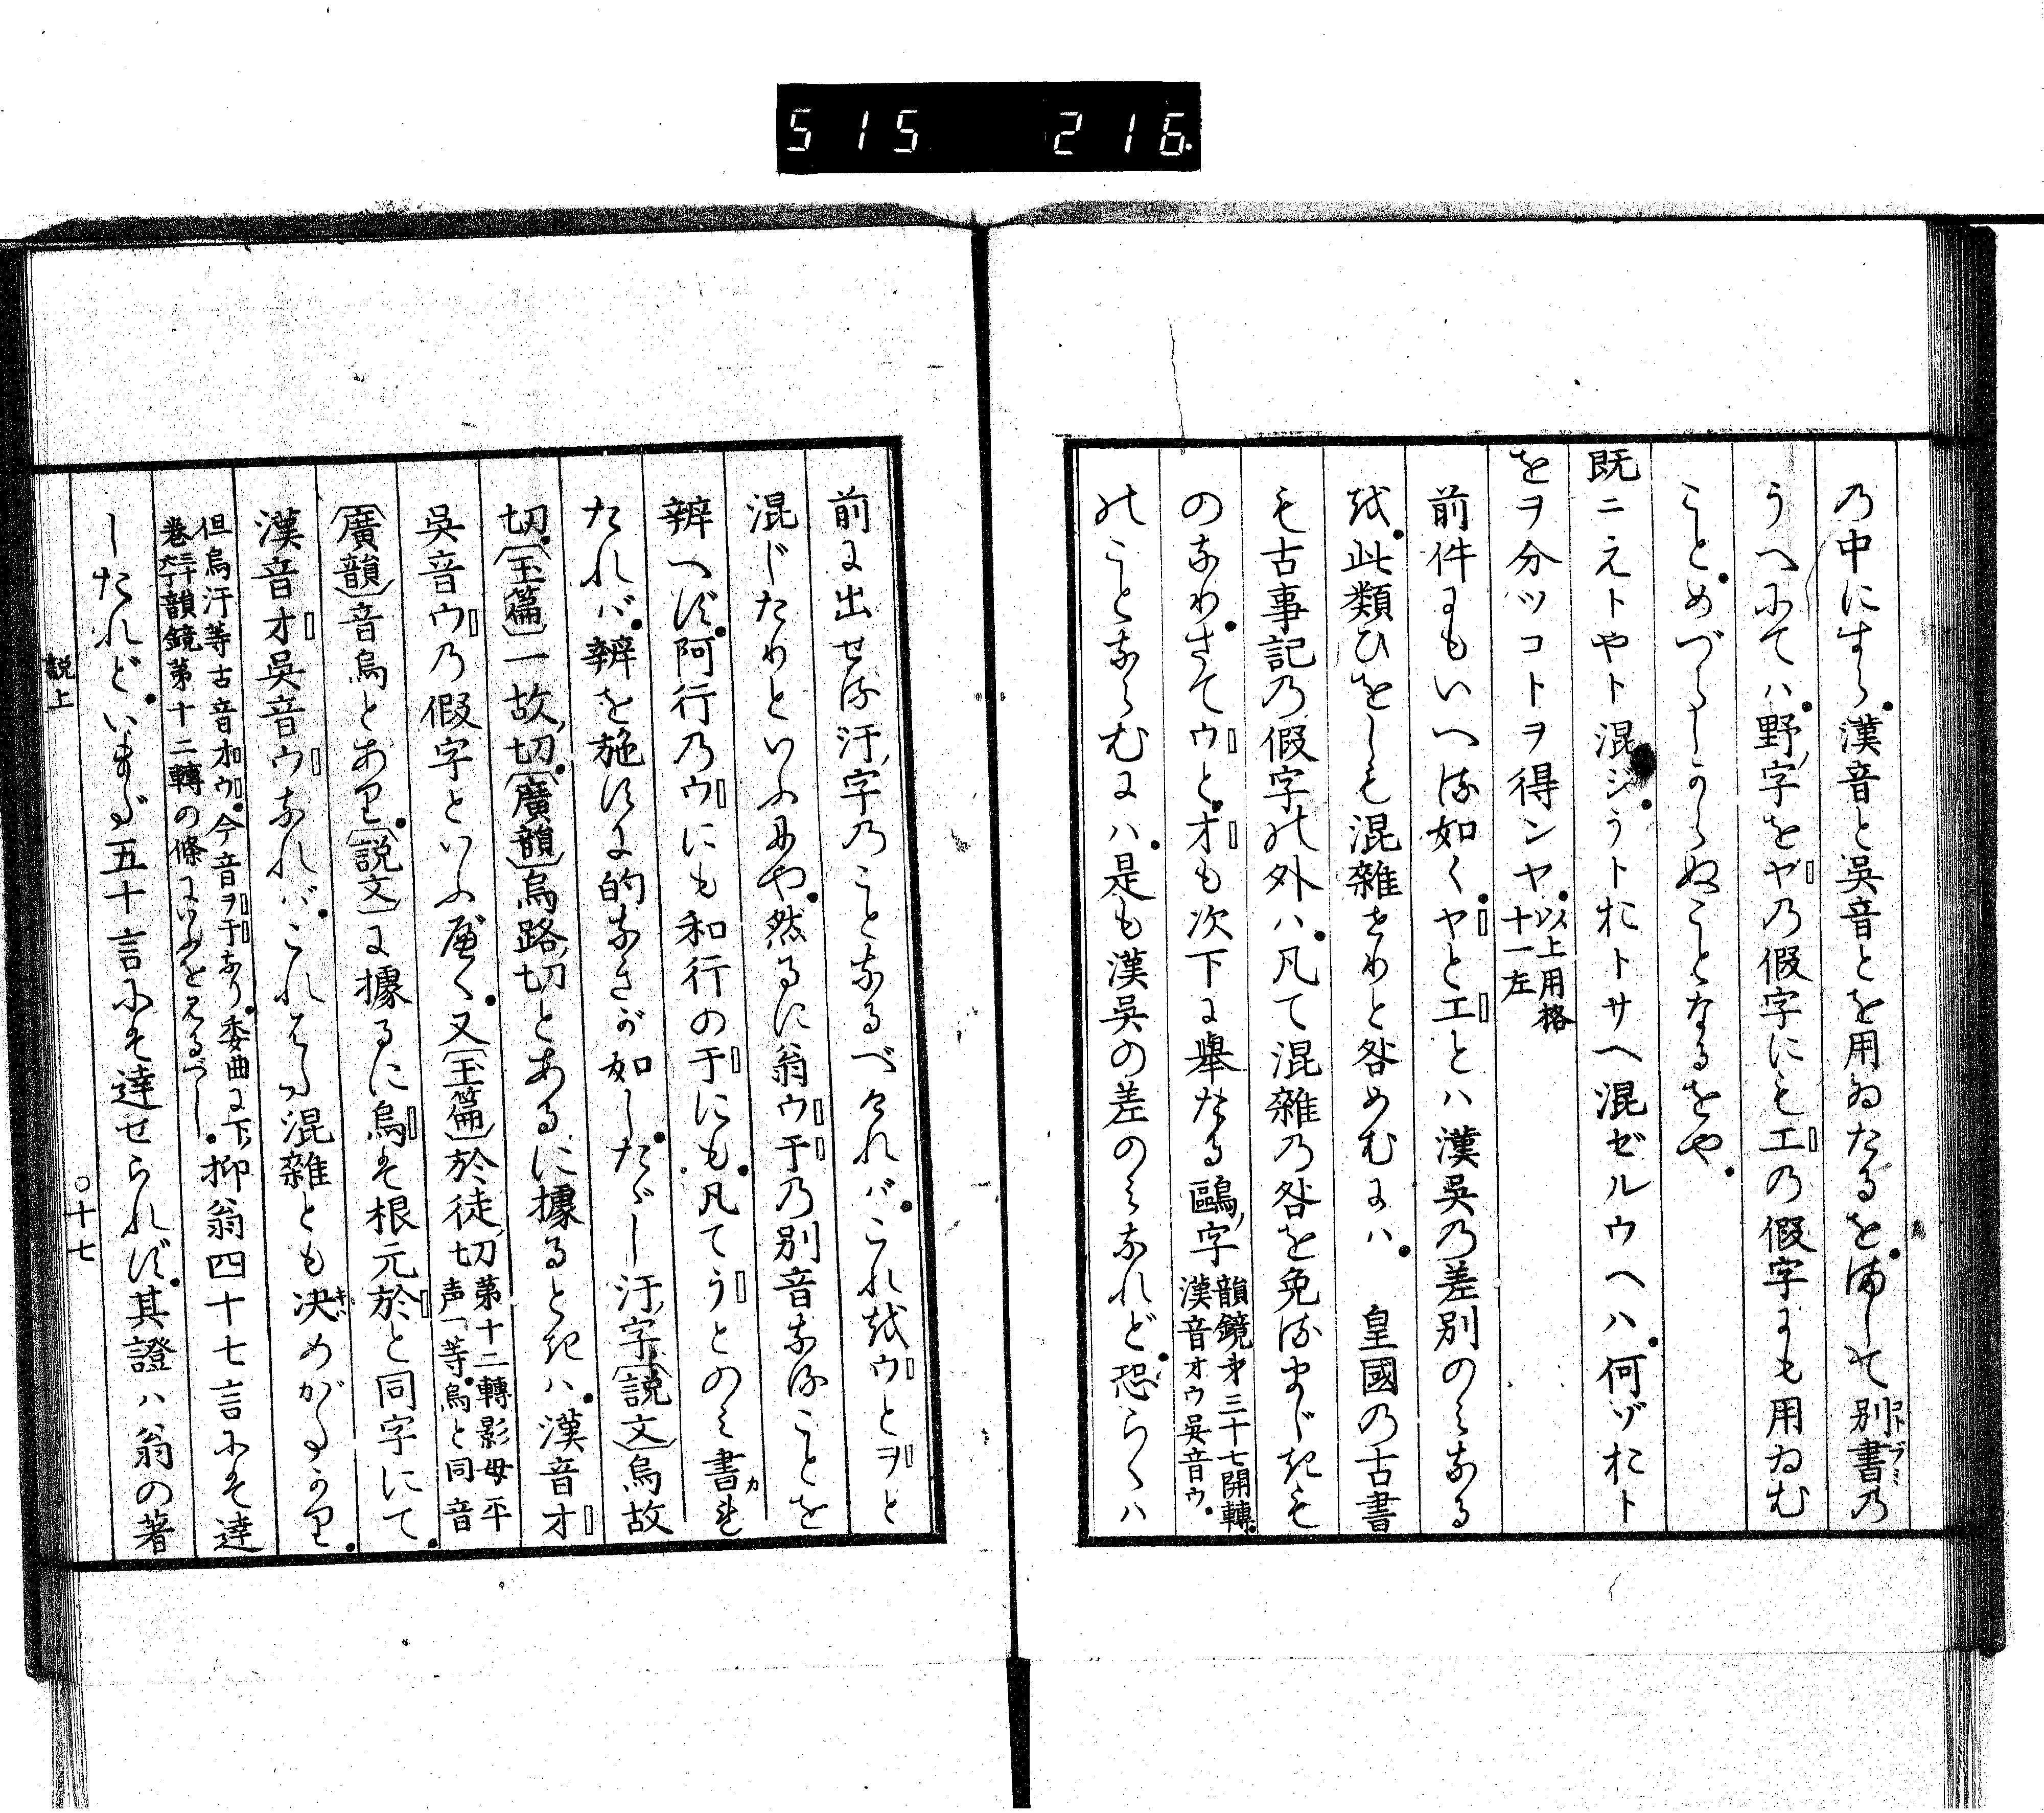 515 216
乃中にすら漢音と吳音とを用ゐたるをまして別書乃
うへにては野字をヤ乃假字にもエの假字にも用ゐむ
ことめづらしからぬことなるをや
既ニえトやト混ジうトおトサヘ混ゼルウヘハ何ゾおト
をヲ分ツコトヲ得ンヤ以上用格十一左
前件にもいへる如くヤとエとハ漢吳乃差別のみなる
を此類ひをしも混雜せりと咎めむにハ 皇國の古書
も古事記乃假字の外ハ凡て混雜乃咎を免るまじきも
のなりさてウとオも次下に擧たる鷗字韻鏡第三十七開轉漢音オウ吳音ウ
のことならむにハ是も漢吳の差のみなれど恐らくハ
前に出せる汙字乃ことなるべければこれをウとヲと
混じたりといふにや然るに翁ウ于乃別音なることを
辨へず阿行乃ウにも和行の于にも凡てうとのみ書れ
たれバ辨を施すに的なきが如したゞし汙字說文烏故
切玉篇一故切廣韻烏路切とあるに據るときハ漢音オ
吳音ウ乃假字といふべく又玉篇於徒切第十二轉影母平声一等烏と同音
廣韻音烏とあり說文に據るに烏は根元於と同字にて
漢音オ吳音ウなれバこれはた混雜とも決めがたかり
但烏汙等古音オウ今音ヲ于なり委曲に下卷三十六丁韻鏡第十二轉の條にいふを見るべし抑翁四十七言にそ達
したれどいまだ五十言にそ達せられず其證ハ翁の著
說上
〇十七